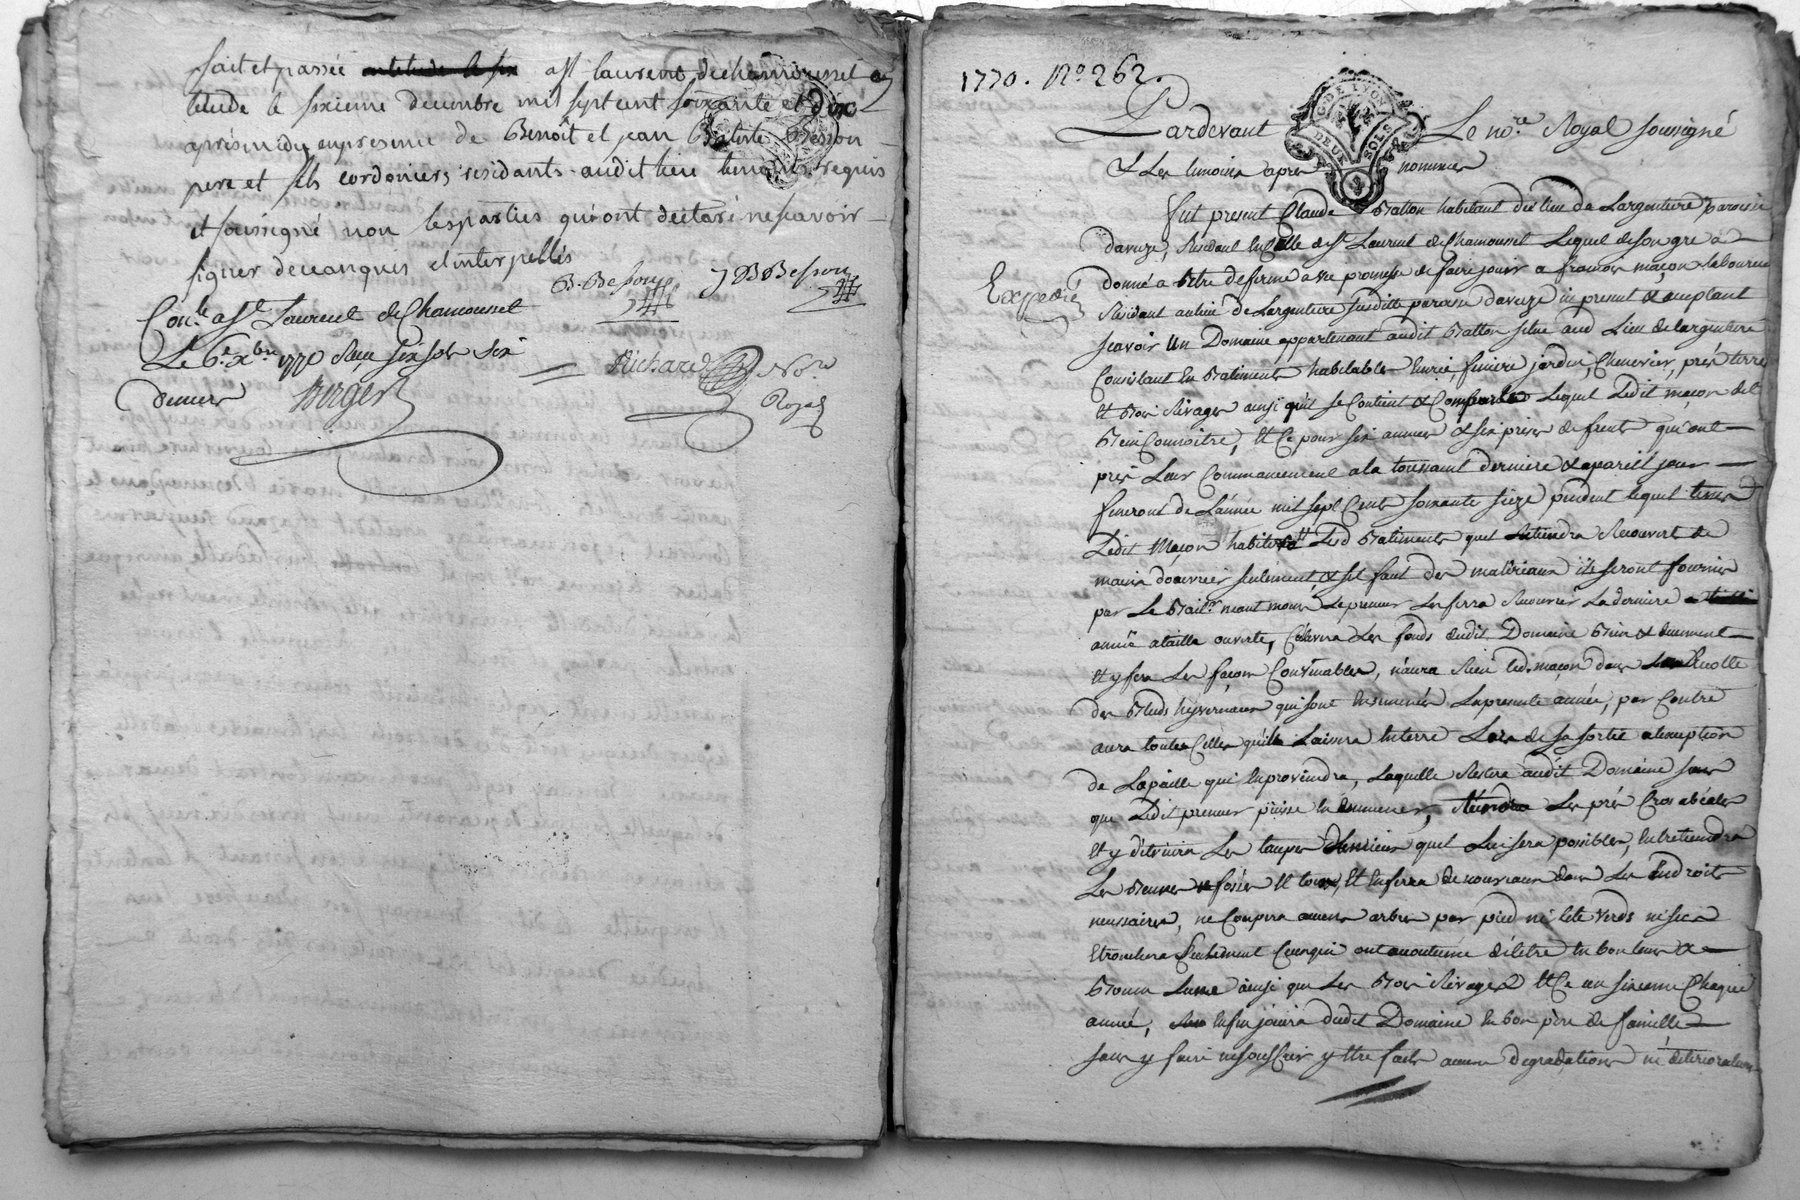 fait et passée a St laurent de chamousset en
letude le sixieme decembre mil sept cent soixante et dix
apres midy en presence de Benoît et jean Batiste Besson
pere et fils cordoniers residants audit lieu temoins requis
et soussigné non les parties qui ont declaré ne scavoir
signer de ce enquis et interpellés
B. Besson J B Besson
Con.le a St Laurent de Chamousset
Le 6.e xbre 1770 Reçu six sols six
deniers
Richard No.re
Royal
1770. N.o 262.
G. DE LYON
DEUX SOLS
Pardevant Le no.re Royal soussigné
& Les temoins apres nommés
fut present Claude Batton habitant du lieu de Largentiere paroisse
daveize, Residant en ville de St Laurent de Chamousset Lequel de son gré a
Expedié
donné a titre de ferme avec promesse de faire jouir a francois maçon laboureur
Residant au lieu de Largentiere susditte paroisse daveize ici present & acceptant
scavoir Un Domaine appartenant audit Batton situé aud. Lieu de largentiere
Consistant en Batiments habitables Ecurie, feniere jardin, Chenevier, prés terres
et Bois Rivages ainsi qu'il se Contient & Comporte Lequel Ledit maçon dit
Bien Connoitre, Et Ce pour six années & six prises de fruits qui ont
pris Leur Commancement a la toussaint derniere & a pareil jour
finiront de L'année mil sept Cents soixante sieze pendent lequel tems
Ledit Maçon habitera Lesd Batiments quel Entiendra Recouvert de
main d'ouvrier seulement, & sil faut des materiaux ils seront fournis
par Le Bail.r neantmoins Le preneur Les ferra Recouvrir La derniere
année a taille ouverte, Cultivera Les fonds dudit Domaine Bien & duement
et y fera Les façons Convenables, n'aura Rien led. maçon dans La Recolte
des Bleds hyvernaux qui sont Ensemencés La presente année, par Contre
aura toutes Celles qu'il Laissera En terre Lors de sa sortie a lexeption
de La paille qui En proviendra, Laquelle Restera audit Domaine sans
que Ledit preneur puisse En emmener, Les prés
et y detruira Les taupes du mieux quil Lui sera possible, Entretiendra
Les fossés et En ferra de nouveaux dans Les Endroits
necessaires, ne Coupera aucuns arbres par pied ni tete verds ni secs
Etronchera Seulement Ceux qui ont acoutumé de letre En bon tems &
Bonne Lune ainsi que Les Bois Rivages Et Ce un sixieme Chaque
année, Enfin jouira dudit Domaine En bon père de famille
sans y faire ni souffrir y etre fait aucunes degradations ni deterioration